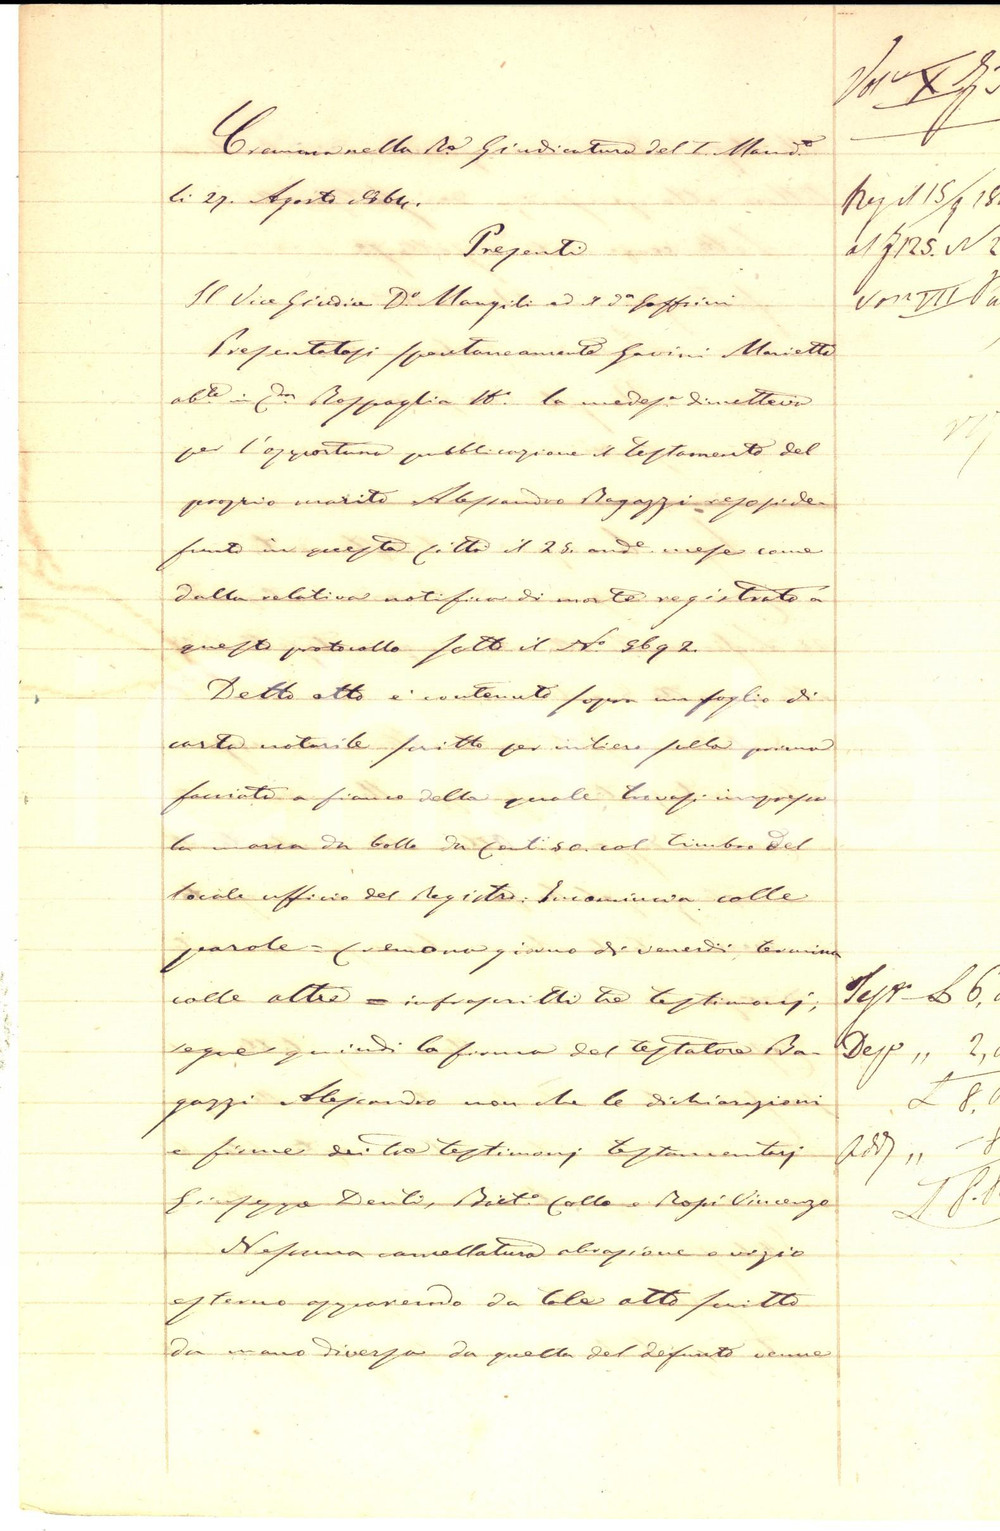 Cremona nella R.ª Giudicatura del I. Mand.to
li 27. Agosto 1864.
Presenti
Il Vice Giudice D.r Mangili ed il d.n Soffrini
Presentatasi spontaneamente Gavini Marietta
ab.te in C.da Baspaglia la medes.a dimetteva
per l'opportuna pubblicazione il testamento del
proprio marito Alessandro Bagazzi resosi de-
funto in questa città il 25. and.e mese come
dalla relativa notifica di morte registrata a
questo protocollo sotto il N.o 5692.
Detto atto è contenuto sopra un foglio di
carta notarile scritto per intiero sulla prima
facciata a fianco della quale trovasi impressa
la marca da bollo da Cent. 50. col timbro del
locale ufficio del Registro. Incomincia colle
parole = Cremona giorno di venerdì, termina
colle altre = infrascritti tre testimonj;
segue quindi la firma del testatore Ba-
gazzi Alessandro non che le dichiarazioni
e firme dei tre testimonj testamentarj
Giuseppe Denti, Bict.o Collo e Rossi Vincenzo
Nessuna cancellatura abrasione o vizio
esterno apparendo da tale atto scritto
da mano diversa da quella del defunto venne
Vol. X
Reg. il 15/9 18
al f. 125. N 2
Vol. VII
Tass. L 6,
Dep. „ 2,
L 8.
Add. „ - 8
L 8.8